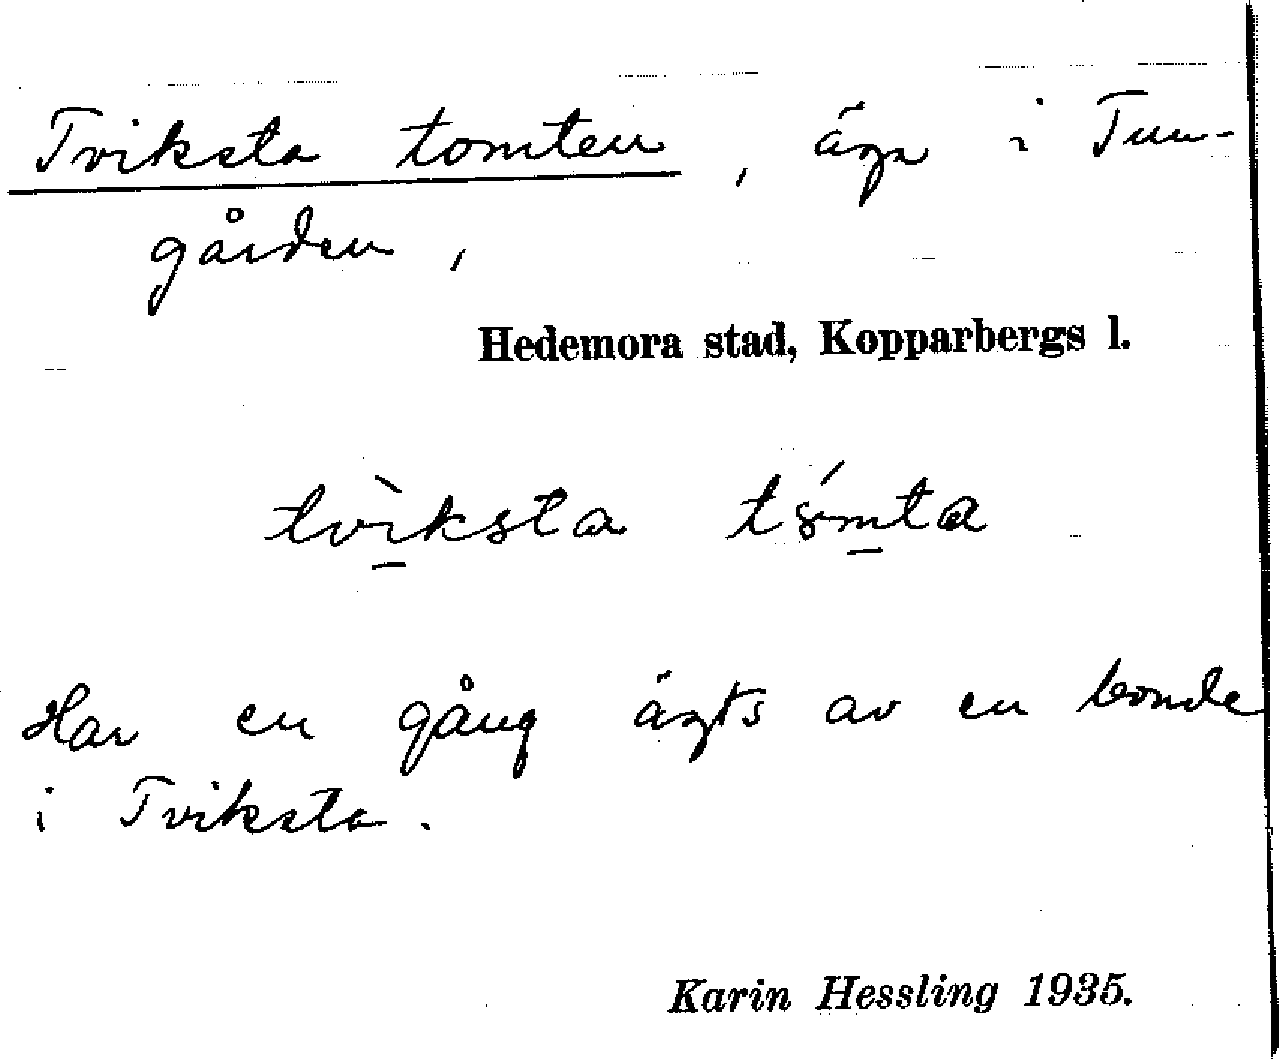 Tviksta tomten, äga i Tun-
gården,
Hedemora stad, Kopparbergs l.
tvìksta
Har en gång ägts av en bonde
i Tviksta.
Karin Hessling 1935.